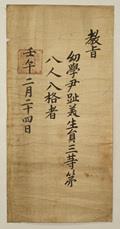 教旨
幼學尹趾羲生員三等第
八人入格者
壬午二月二十四日